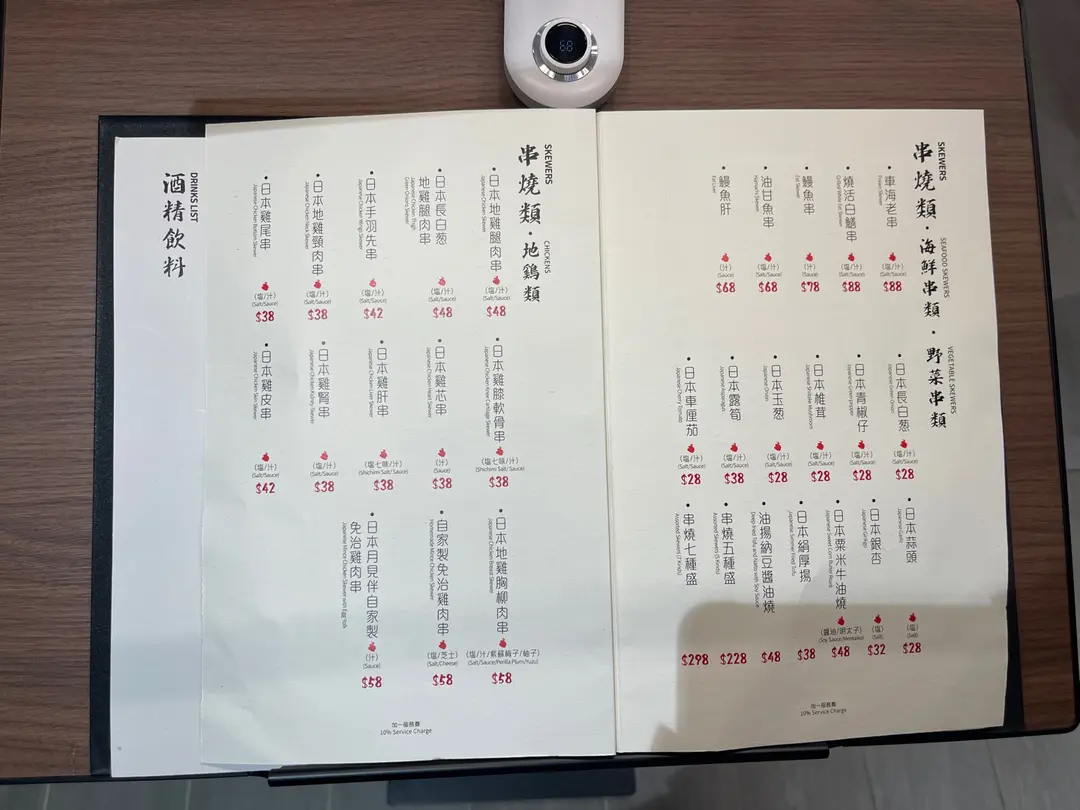 68
SKEWERS
串燒類 · 海鮮串類 · 野菜串類
SEAFOOD SKEWERS
VEGETABLE SKEWERS
• 車海老串
Prawn Skewer
(塩/汁)
(Salt/Sauce)
$88
• 燒活白鱔串
Grilled White Eel Skewer
(塩/汁)
(Salt/Sauce)
$88
• 鰻魚串
Eel Skewer
(汁)
(Sauce)
$78
• 油甘魚串
Hamachi Skewer
(塩/汁)
(Salt/Sauce)
$68
• 鰻魚肝
Eel Liver
(汁)
(Sauce)
$68
• 日本長白葱
Japanese Green Onion
(塩/汁)
(Salt/Sauce)
$28
• 日本青椒仔
Japanese Green pepper
(塩/汁)
(Salt/Sauce)
$28
• 日本椎茸
Japanese Shiitake Mushroom
(塩/汁)
(Salt/Sauce)
$28
• 日本玉葱
Japanese Onion
(塩/汁)
(Salt/Sauce)
$28
• 日本露筍
Japanese Asparagus
(塩/汁)
(Salt/Sauce)
$38
• 日本車厘茄
Japanese Cherry Tomato
(塩/汁)
(Salt/Sauce)
$28
• 日本蒜頭
Japanese Garlic
(塩)
(Salt)
$28
• 日本銀杏
Japanese Ginkgo
(塩)
(Salt)
$32
• 日本粟米牛油燒
Japanese Sweet Corn Butter Roast
(醬油/明太子)
(Soy Sauce/Mentaiko)
$48
• 日本絹厚揚
Japanese Simmer Fried Tofu
$38
• 油揚納豆醬油燒
Deep-fried Tofu and Natto with Soy Sauce
$48
• 串燒五種盛
Assorted Skewers (5 Kinds)
$228
• 串燒七種盛
Assorted Skewers (7 Kinds)
$298
加一服務費
10% Service Charge
SKEWERS
串燒類 · 地鷄類
CHICKENS
• 日本地雞腿肉串
Japanese Chicken Skewer
(塩/汁)
(Salt/Sauce)
$48
• 日本長白葱
地雞腿肉串
Japanese Chicken Thigh
Green Onions Skewer
(塩/汁)
(Salt/Sauce)
$48
• 日本手羽先串
Japanese Chicken Wings Skewer
(塩/汁)
(Salt/Sauce)
$42
• 日本地雞頸肉串
Japanese Chicken Neck Skewer
(塩/汁)
(Salt/Sauce)
$38
• 日本雞尾串
Japanese Chicken Bottom Skewer
(塩/汁)
(Salt/Sauce)
$38
• 日本雞膝軟骨串
Japanese Chicken Knee Cartilage Skewer
(塩七味/汁)
(Shichimi Salt/ Sauce)
$38
• 日本雞芯串
Japanese Chicken Heart Skewer
(汁)
(Sauce)
$38
• 日本雞肝串
Japanese Chicken Liver Skewer
(塩七味/汁)
(Shichimi Salt/ Sauce)
$38
• 日本雞腎串
Japanese Chicken Kidney Skewer
(塩/汁)
(Salt/Sauce)
$38
• 日本雞皮串
Japanese Chicken Skin Skewer
(塩/汁)
(Salt/Sauce)
$42
• 日本地雞胸柳肉串
Japanese Chicken Breast Skewer
(塩/汁/紫蘇梅子/柚子)
(Salt/Sauce/Perilla Plum/Yuzu)
$58
• 自家製免治雞肉串
Homemade Mince Chicken Skewer
(塩/芝士)
(Salt/Cheese)
$58
• 日本月見伴自家製
免治雞肉串
Japanese Mince Chicken Skewer with Egg Yolk
(汁)
(Sauce)
$58
加一服務費
10% Service Charge
DRINKS LIST
酒精飲料